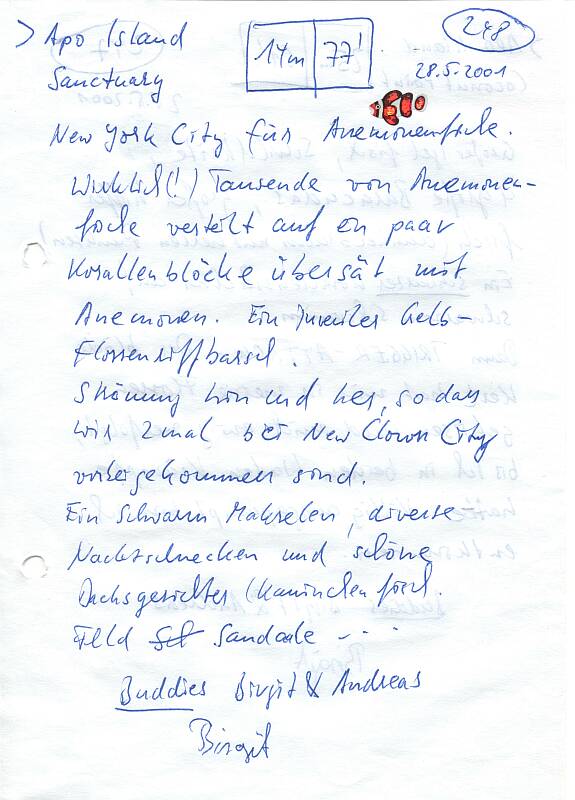 > Apo Island
Sanctuary
14m 77'
248
28.5.2001
New York City für Anemonenfische.
Wirklich(!) Tausende von Anemonen-
fische verteilt auf en paar
Korallenblöcke übersät mit
Anemonen. Ein juveniler Gelb-
Flossenriffbarsch.
Strömung hin und her, so dass
wir 2mal bei New Clown City
vorbeigekommen sind.
Ein Schwarm Makrelen, diverse
Nachtschnecken und schöne
Dachsgesichter (Kaninchenfisch.
Feld Sandaale ---
Buddies Birgit & Andreas
Birgit